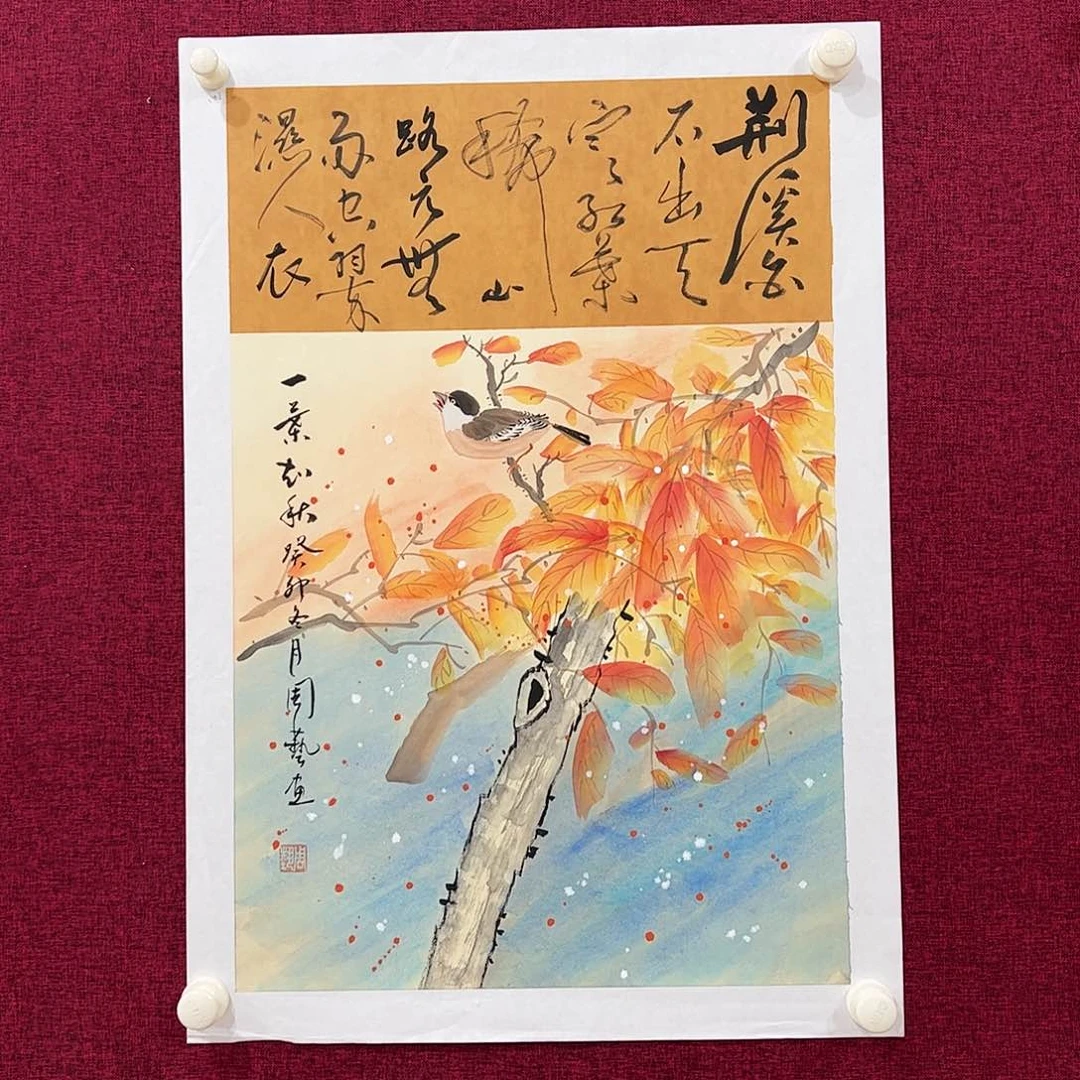 荆溪白
石出天
寒红葉
稀山
路元無
雨空翠
濕人衣
一葉知秋癸卯冬月周藝画